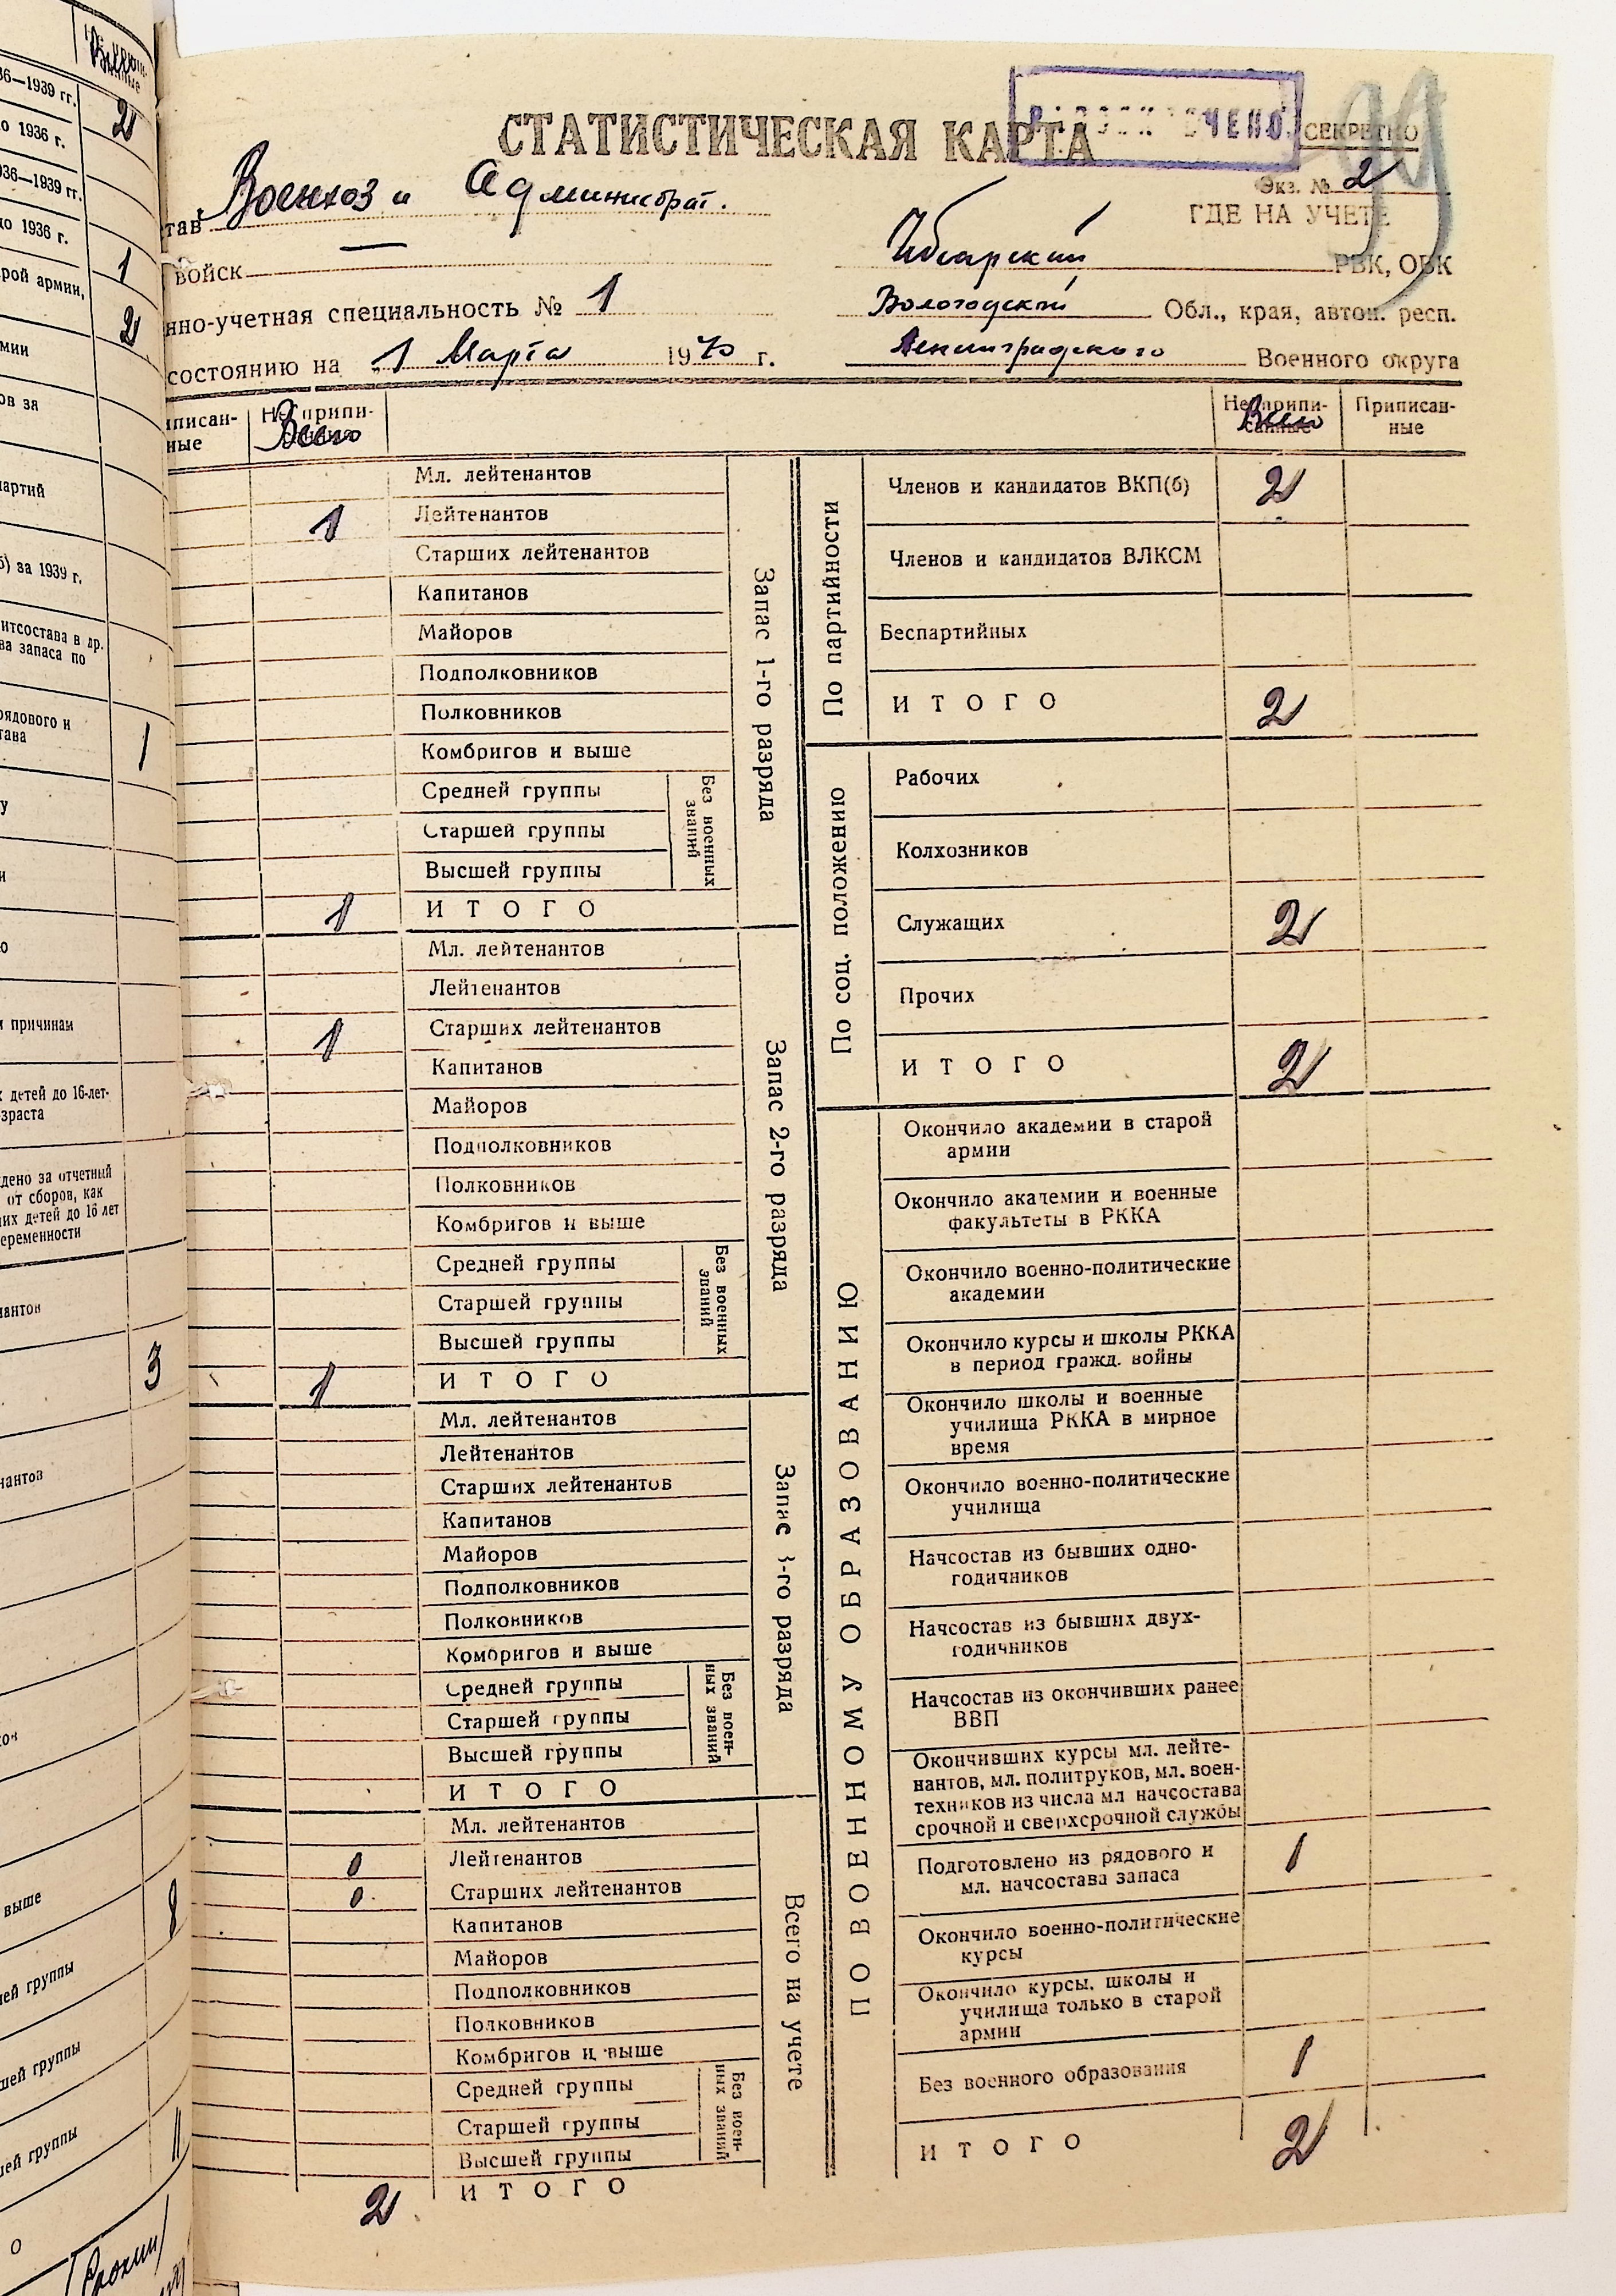 СТАТИСТИЧЕСКАЯ КАРТА
СЕКРЕТНО
Экз. № 2
ГДЕ НА УЧЕТЕ
тав Военхоз и Администрат.
войск —
РВК, ОВК
нно-учетная специальность № 1
Вологодской Обл., края, автон. респ.
состоянию на „1 Марта 1940 г.
Ленинградского Военного округа
писан-
ные
Не припи-
Всего
Не припи-
санные
Всего
Приписан-
ные
Запас 1-го разряда
Мл. лейтенантов
1 Лейтенантов
Старших лейтенантов
Капитанов
Майоров
Подполковников
Полковников
Комбригов и выше
Средней группы
Старшей группы
Высшей группы
Без военных
званий
1 ИТОГО
Запас 2-го разряда
Мл. лейтенантов
Лейтенантов
1 Старших лейтенантов
Капитанов
Майоров
Подполковников
Полковников
Комбригов и выше
Средней группы
Старшей группы
Высшей группы
Без военных
званий
1 ИТОГО
Запас 3-го разряда
Мл. лейтенантов
Лейтенантов
Старших лейтенантов
Капитанов
Майоров
Подполковников
Полковников
Комбригов и выше
Средней группы
Старшей группы
Высшей группы
Без воен-
ных званий
ИТОГО
Всего на учете
Мл. лейтенантов
Лейтенантов
Старших лейтенантов
Капитанов
Майоров
Подполковников
Полковников
Комбригов и выше
Средней группы
Старшей группы
Высшей группы
Без воен-
ных званий
2 ИТОГО
По партийности
Членов и кандидатов ВКП(б) 2
Членов и кандидатов ВЛКСМ
Беспартийных
ИТОГО 2
По соц. положению
Рабочих
Колхозников
Служащих 2
Прочих
ИТОГО 2
ПО ВОЕННОМУ ОБРАЗОВАНИЮ
Окончило академии в старой
армии
Окончило академии и военные
факультеты в РККА
Окончило военно-политические
академии
Окончило курсы и школы РККА
в период гражд. войны
Окончило школы и военные
училища РККА в мирное
время
Окончило военно-политические
училища
Начсостав из бывших одно-
годичников
Начсостав из бывших двух-
годичников
Начсостав из окончивших ранее
ВВП
Окончивших курсы мл. лейте-
нантов, мл. политруков, мл. воен-
техников из числа мл начсостава
срочной и сверхсрочной службы
Подготовлено из рядового и
мл. начсостава запаса 1
Окончило военно-политические
курсы
Окончило курсы, школы и
училища только в старой
армии
Без военного образования 1
ИТОГО 2
36—1939 гг. 2
о 1936 г.
936—1939 гг.
до 1936 г. 1
рой армии, 2
мии
ов за
артий
б) за 1939 г.
итсостава в др.
ва запаса по
рядового и
тава 1
у
и
ю
и причинам
х детей до 16-лет-
зраста
дено за отчетный
от сборов, как
их детей до 16 лет
еременности
нантов
3
нантов
выше
ей группы
шей группы
шей группы 11
о